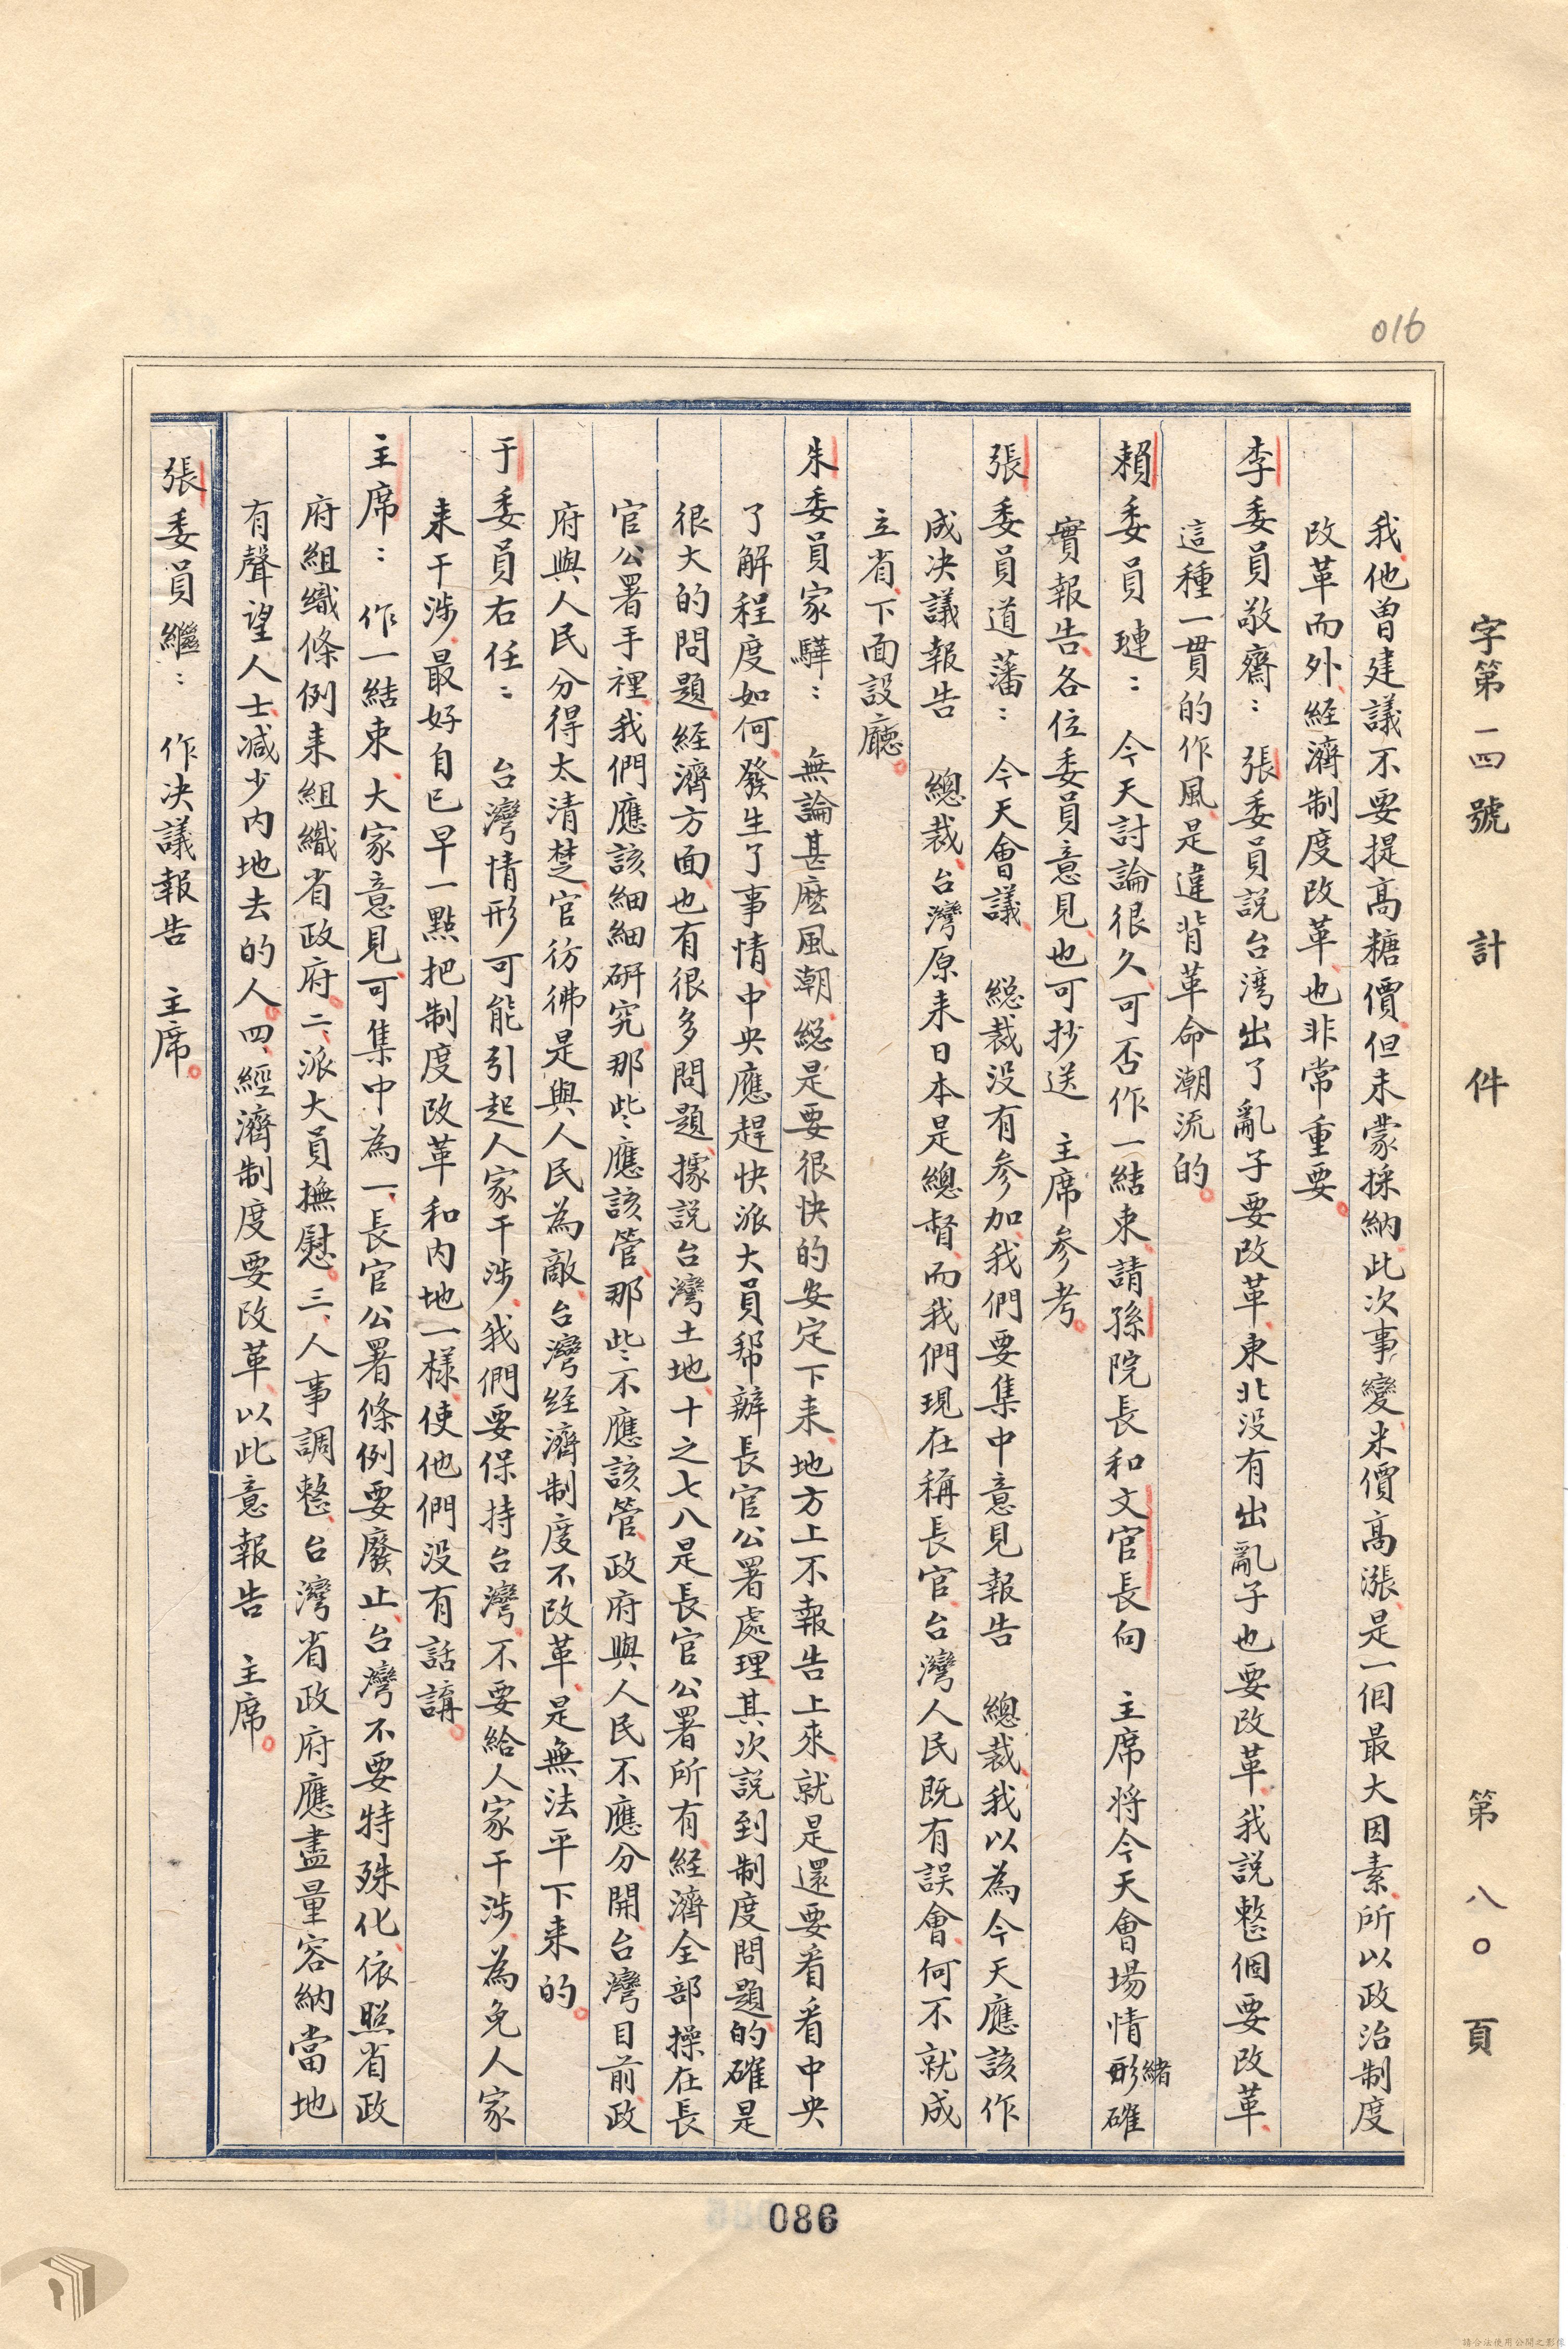 016
字第一四號　計　件　　第八〇頁
我、他曾建議不要提高糖價、但未蒙採納、此次事變、米價高漲是一個最大因素、所以政治制度
改革而外、経濟制度改革、也非常重要。
李委員敬齋：張委員説台湾出了亂子要改革、東北没有出亂子也要改革、我説整個要改革、
這種一貫的作風、是違背革命潮流的。
賴委員璉：今天討論很久、可否作一結束、請孫院長和文官長向　主席將今天會場情形緒確
實報告、各位委員意見、也可抄送　主席參考。
張委員道藩：今天會議、　総裁没有參加、我們要集中意見報告　總裁、我以為今天應該作
成決議報告　總裁、台灣原来日本是總督、而我們現在稱長官、台灣人民既有誤會、何不就成
立省、下面設廳。
朱委員家驊：無論甚麽風潮、総是要很快的安定下来、地方上不報告上來、就是還要看看中央
了解程度如何、發生了事情、中央應趕快派大員帮辦長官公署處理、其次説到制度問題、的確是
很大的問題、経濟方面、也有很多問題、據説台灣土地、十之七八是長官公署所有、経濟全部操在長
官公署手裡、我們應該細細研究、那些應該管、那些不應該管、政府與人民不應分開、台灣目前、政
府與人民分得太清楚、官彷彿是與人民為敵、台灣経濟制度不改革、是無法平下来的。
于委員右任：台灣情形可能引起人家干涉、我們要保持台灣、不要給人家干涉、為免人家
来干涉、最好自已早一點把制度改革和内地一樣、使他們没有話講。
主席：作一結束、大家意見、可集中為一、長官公署條例要廢止、台灣不要特殊化、依照省政
府組織條例来組織省政府。二、派大員撫慰。三、人事調整、台灣省政府應盡量容納當地
有聲望人士、减少内地去的人。四、經濟制度要改革、以此意報告　主席。
張委員繼：作决議報告　主席。
086
請合法使用公開之影像